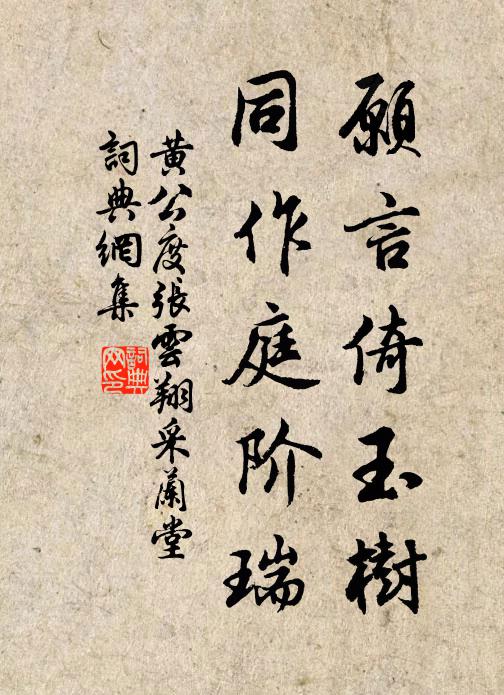 願言倚玉樹
同作庭阶瑞
黄公度張雲翔采蘭堂
詞典網集
詞典网印